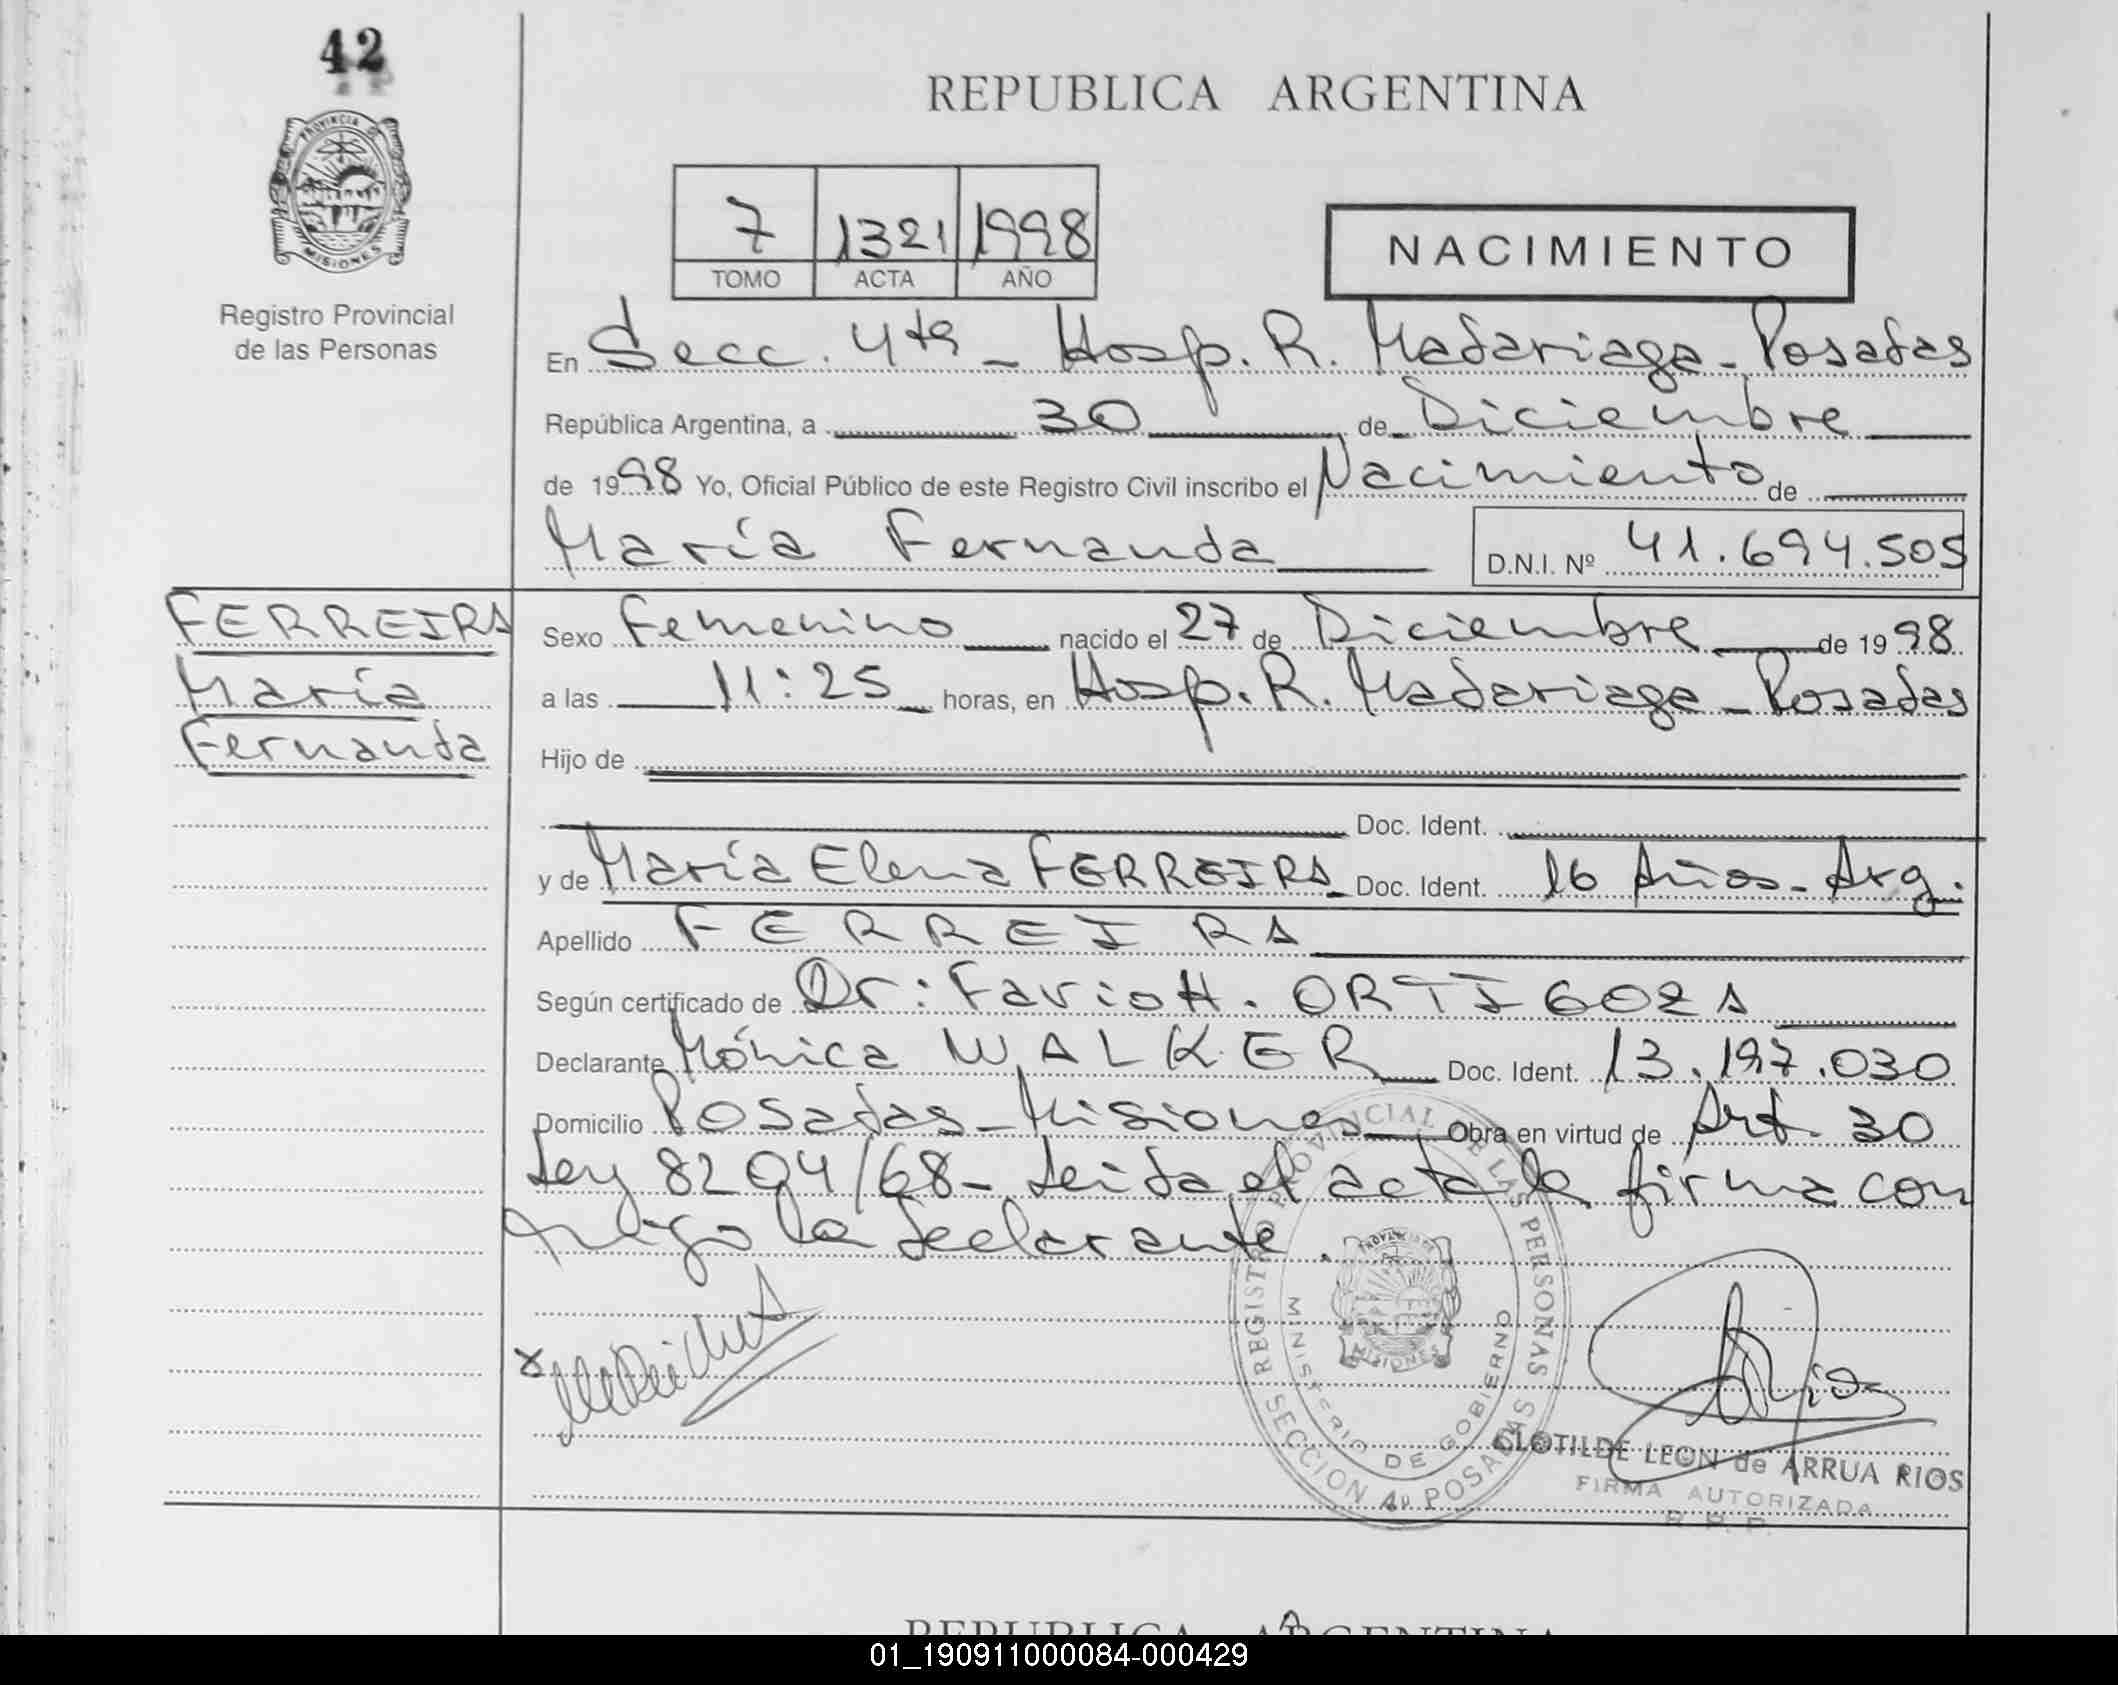 42
PROVINCIA DE
MISIONES
Registro Provincial
de las Personas
REPUBLICA ARGENTINA
7 1321 1998
TOMO ACTA AÑO
NACIMIENTO
En Secc. 4ta - Hosp. R. Madariaga - Posadas
República Argentina, a 30 de Diciembre
de 1998 Yo, Oficial Público de este Registro Civil inscribo el Nacimiento de
María Fernanda D.N.I. Nº 41.694.505
FERREIRA
María
Fernanda
Sexo Femenino nacido el 27 de Diciembre de 1998
a las 11:25 horas, en Hosp. R. Madariaga - Posadas
Hijo de
Doc. Ident.
y de María Elena FERREIRA Doc. Ident. 16 Años - Arg.
Apellido FERREIRA
Según certificado de Dr: Favio H. ORTIGOZA
Declarante Mónica WALKER Doc. Ident. 13.197.030
Domicilio Posadas - Misiones Obra en virtud de Art. 30
Ley 8204/68 - Leida el acta la firma con
migo la declarante.
REGISTRO PROVINCIAL DE LAS PERSONAS
MINISTERIO DE GOBIERNO
MISIONES
SECCION 4a POSADAS
x
CLOTILDE LEON de ARRUA RIOS
FIRMA AUTORIZADA
R. P. P.
REPUBLICA ARGENTINA
01_190911000084-000429